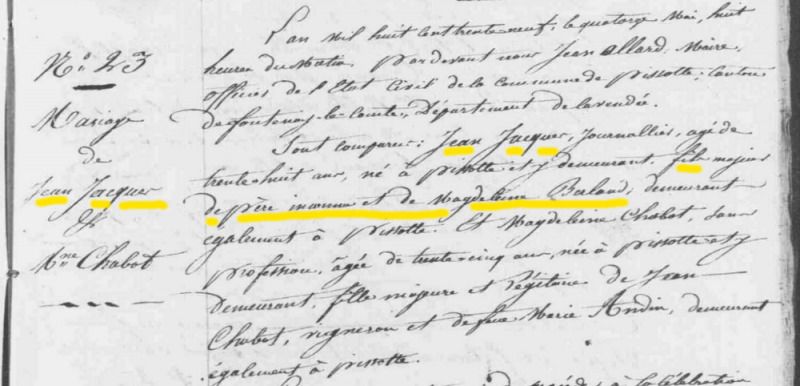 N.o 23
Mariage
de
Jean Jacques
&
M.ne Chabot
L'an mil huit cent trente-neuf, le quatorze Mai, huit
heures du Matin. Pardevant nous Jean Allard, Maire,
officier de l'Etat Civil de la Commune de pissotte, Canton
de fontenay-le-comte, Département de la vendée.
Sont comparus: Jean Jacques, Journallier, agé de
trente huit ans, né à pissotte et y demeurant, fils majeur
de père inconnu et de Magdeleine Berland, demeurant
également à pissotte. Et Magdeleine Chabot, sans
profession, âgée de trente cinq ans, née à pissotte et y
demeurant, fille majeure et légitime de Jean
Chabot, vigneron et de feue Marie Andin, demeurant
également à pissotte.
à la célébration